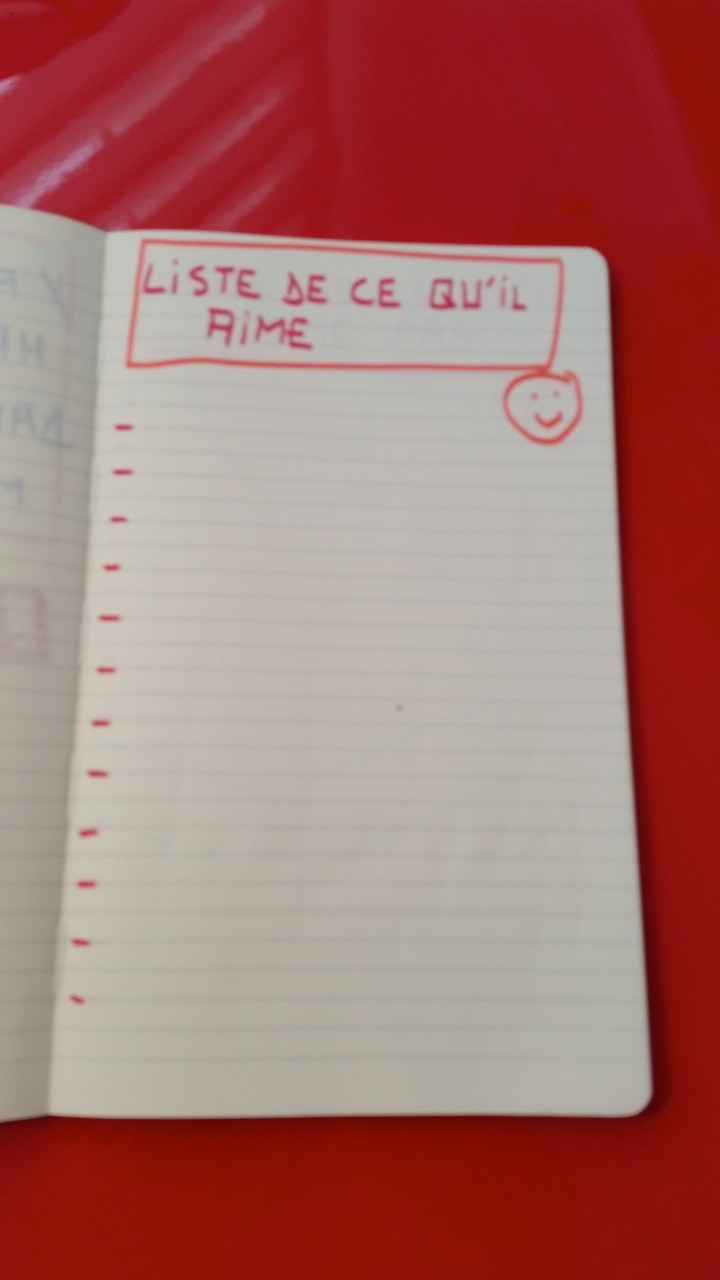 LiSTE DE CE QU'iL
AiME
-
-
-
-
-
-
-
-
-
-
-
-